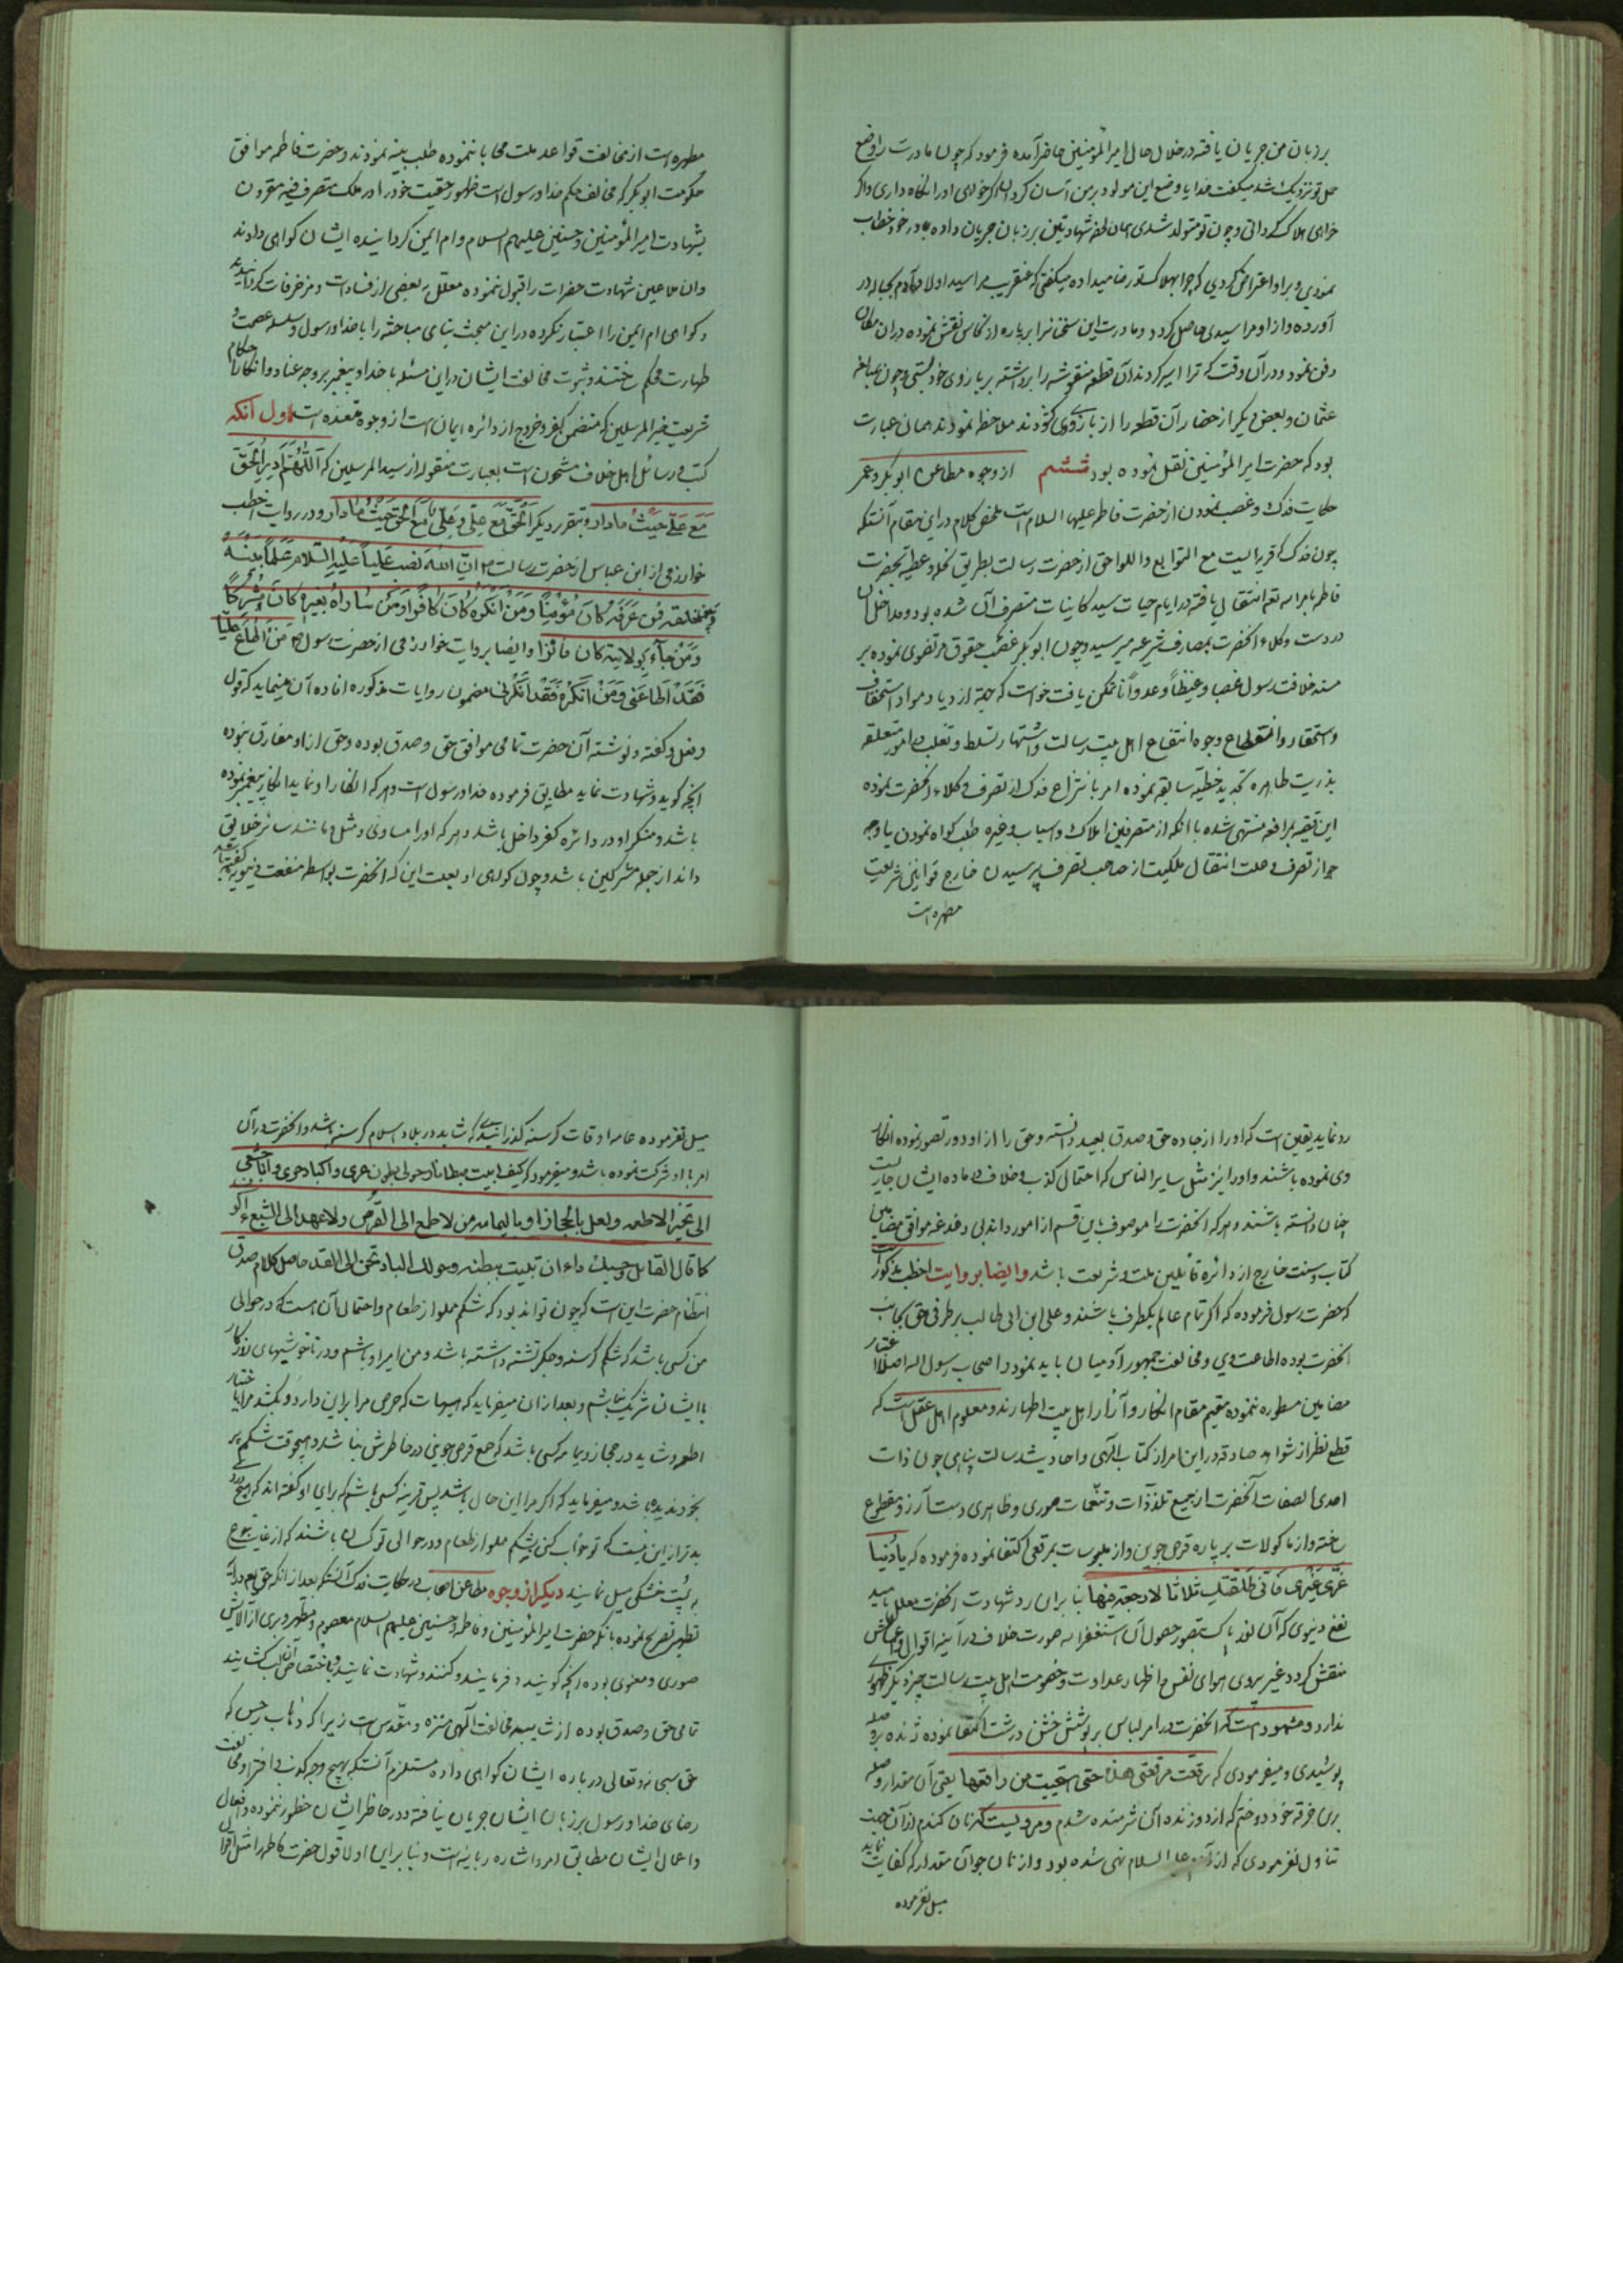 بر زبان من جریان یافته در خلال حال امیر المؤمنین حاضر آمده فرمود که چون مادرت را وضع
حمل تو نزدیک شد میگفت خدایا وضع این مولود بر من آسان کردان اکر خواهی او را نکاه داری و اکر
خواهی هلاک کردانی و چون تو متولد شدی همان لحظه شهادتین بر زبان جریان داده با مادر خود خطاب
نمودی و بر او اعتراض کردی که چرا بهلاکت و رضا میداده میکفتی که عنقریب مرا سید اولاد آدم بحباله در
آورده و از او مرا سیدی حاصل کردد و مادرت این سخنانرا بر پاره از نحاس نقش نموده در آن مکان
دفن نمود و در آن وقت که ترا اسیر کردند آن قطعه منقوشه را برداشته بر بازوی خود بستی و چون بمبالغه
عثمان و بعض دیکر از حضار آن قطعه را از بازوی کشودند ملاحظه نمودند همان عبارت
بود که حضرت امیر المؤمنین نقل نموده بود ششم از وجوه مطاعن ابوبکر و عمر
حکایت فدک و غصب نمودن از حضرت فاطمه علیها السلام است ملخص کلام در این مقام آنستکه
چون فدک که قریه ایست مع التوابع و اللواحق از حضرت رسالت بطریق نحله و عطیه بحضرت
فاطمه بامر الله تعم انتقال یافته در ایام حیات سید کاینات متصرف آن شده بود و مداخل آن
در دست وکلاء آنحضرت بمصارف شرعیه میرسید و چون ابوبکر غصب حقوق مرتضوی نموده بر
مسند خلافت رسول غصبا و غیظا و عدوانا تمکن یافت خواست که جهة ازدیاد مواد استخفاف
و استحقار و انقطاع وجوه انتفاع اهل بیت رسالت و اشتهار تسلط و تغلب در امور متعلقه
بذریت طاهره تجدید خطیئه سابقه نموده امر بانتزاع فدک از تصرف وکلاء آنحضرت نموده
این قضیه بمرافعه منتهی شده با آنکه از متصرفین املاک و اسباب و غیره طلب کواه نمودن یا وجه
جواز تصرف و علت انتقال ملکیت از صاحب تصرف پرسیدن خارج قوانین شریعت
مطهره است
مطهره است از مخالفت قواعد ملت محابا ننموده طلب بینه نمودند و حضرت فاطمه موافق
حکومت ابوبکر که مخالف حکم خدا و رسول است ظهور حقیت خود را در ملک متصرف فیه مقرون
بشهادت امیر المؤمنین و حسنین علیهم السلام و ام ایمن کردانیده ایشان کواهی دادند
و ان طاعین شهادت حضرات را قبول ننموده معلل به بعضی از فسادات و مزخرفات کردانیدند
و کواهی ام ایمن را اعتبار نکرده در این مبحث بنای مباحثه را با خدا و رسول و سلسله عصمت و
طهارت محکم ساختند و ثبوت مخالفت ایشان در این مسئله با خدا و پیغمبر بر وجه عناد و انکار احکام
شریعت خیر المرسلین که متضمن کفر و خروج از دائره ایمان است از وجوه متعدده است اول آنکه
کتب و رسائل اهل خلاف مشحون است بعبارت منقوله از سید المرسلین که اَللّٰهُمَّ اَدِرِ الْحَقَّ
مَعَ عَلِیٍّ حَیْثُ مادار و بتقریر دیکر اَلْحَقُّ مَعَ عَلِیٍّ وَ عَلِیٌّ مَعَ الْحَقِّ حَیْثُ مادار و در روایت اخطب
خوارزمی از ابن عباس از حضرت رسالت ص اِنَّ اللّٰهَ نَصَبَ عَلِیّاً عَلَیْهِ السَّلام عَلَماً بَیْنَهُ
وَ بَیْنَ خَلْقِهِ فَمَن عَرَفَهُ کانَ مُؤْمِناً وَ مَنْ اَنْکَرَهُ کانَ کافِراً وَ مَنْ ساواهُ بِغَیْرِهِ کانَ مُشْرِکاً
وَ مَنْ جآءَ بِوِلایَتِهِ کان فائزا و ایضا بروایت خوارزمی از حضرت رسول ص مَنْ اَطاعَ عَلِیّاً
فَقَدْ اَطاعَنی وَ مَنْ اَنْکَرَهُ فَقَدْ اَنْکَرَنی مضمون روایات مذکوره افاده آن مینماید که قول
و فعل و کفته و نوشته آن حضرت تمامی موافق حق و صدق بوده و حق از او مفارق نبوده
آنچه کوید و شهادت نماید مطابق فرموده خدا و رسول است و هر که انکار او نماید انکار پیغمبر نموده
باشد و منکر او در دائره کفر داخل باشد و هر که او را مساوی و مثل و مانند سائر خلایق
داند از جمله مشرکین باشد و چون کواهی او بعلت این که آنحضرت بواسطه منفعت دنیویه کفته باشد
رد نماید یقین است که او را از جاده حق و صدق بعید دانسته و حق را از او دور تصور نموده انکار
وی نموده باشند و او را نیز مثل سایر الناس که احتمال کذب و خلاف در ماده ایشان جایز است
چنان دانسته باشند و هر که آنحضرت را موصوف باین قسم از امور داند بی دغدغه موافق مضامین
کتاب و سنت خارج از دائره قائلین ملت و شریعت باشد و ایضا بروایت اخطب مذکور است
که حضرت رسول فرموده که اکر تمام عالم یکطرف باشند و علی ابن ابی طالب بر طرفی حق بجانب
آنحضرت بوده اطاعت وی و مخالفت جمهور آدمیان باید نمود و اصحاب رسول الله اصلا اعتبار
مضامین مسطوره ننموده مقیم مقام انکار و آزار اهل بیت اطهارند و معلوم اهل عقل است که
قطع نظر از شواهد صادقه در این امر از کتاب الهی و احادیث رسالت پناهی چون ذات
احدی الصفات آنحضرت از جمیع تلذذات و تنعمات صوری و ظاهری دست آرزو مقطوع
ساخته و از ماکولات بر پاره قرص جوین و از ملبوسات بمرقعی اکتفا نموده فرموده که یا دُنیا
غُرِّی غَیْرِی فَاِنّی طَلَّقْتُکِ ثلاثا لا رجعة فیها بنا برای رد شهادت آنحضرت معلل باید
نفع دنیوی که آن نعوذ بالله تصور حصول آن استغفر الله صورت خلاف در آینه اقوال و اعمالش
منقش کردد غیر پیروی هوای نفس و اظهار عداوت و خصومت اهل بیت رسالت چیز دیکر ظهوری
ندارد و مشهود است که آنحضرت در امر لباس بر پوشش خشن درشت اکتفا نموده ژنده بر وصله
پوشیدی و میفرمودی که رقعت مرقعتی هذه حتی استحییت من راقعها یعنی آن مقدار وصله
بر این خرقه خود دوختم که از دوزنده آن شرمنده شدم و مرویست که نان کندم از آن جهت
تناول نفرمودی که از آدم علیه السلام نهی شده بود و از نان جو آن مقدار که کفایت نماید
میل نفرموده
میل نفرموده عامه اوقات کرسنه کذرانیدی که شاید در بلاد اسلام کرسنه باشد و آنحضرت در آن
امر با او شرکت نموده باشد و میفرمود که کیف ابیت مبطانا و حولی بطون غرثی و اکباد حرّی و ایا جشعی
الی تخیر الاطعمه و لعل بالحجاز او بالیمامه من لا طمع الی القرص و لا عهد الی الشبع و اکو
کما قال القائل و حسبک داء ان تبیت ببطنه و حولک اکباد تحن الی القد حاصل کلام صدق
انتظام حضرت این است که چون تواند بود که شکم مملو از طعام و احتمال آن است که در حوالی
من کسی باشد که شکم کرسنه و جکر تشنه داشته باشد و من امیر او باشم و در ناخوشیهای روزکار
با ایشان شریک نباشم و بعد از آن میفرماید که هیهات که حرص مرا بر این دارد و بکشد مرا باختیار
اطعمه و شاید در حجاز و یمامه کسی باشد که طمع قرص جوینی در خاطرش نباشد و هیچوقت شکم پر
بخود ندیده باشد و میفرماید که اکر مرا این حال باشد پس قرینه کسی باشم که برای او کفته اند که هیچ دردی
بدتر از این نیست که تو خواب کنی بشکم مملو از طعام و در حوالی تو کسان باشند که از غایت جوع
به پوست خشکی میل نمایند دیکر از وجوه مطاعن اصحاب در حکایت فدک آنستکه بعد از آنکه حق تعم در آیه
تطهیر تصریح نموده بآنکه حضرت امیر المؤمنین و فاطمه و حسنین علیهم السلام معصوم و مطهر و بری از آلایش
صوری و معنوی بوده آنچه کویند و فرمایند و کنند و شهادت نمایند و باختصاص آن لب کشایند
تمامی حق و صدق بوده از شائبه مخالفت الهی منزه و مقدس است زیرا که ذهاب رجس که
حق سبحانه و تعالی درباره ایشان کواهی داده مستلزم آنستکه بهیچ وجه کذب و افترا و مخالفت
رضای خدا و رسول بر زبان ایشان جریان نیافته و در خاطر ایشان خطور ننموده و افعال
و اعمال ایشان مطابق امر و اشاره ربانیه است و بنا بر این اولا قول حضرت فاطمه را مثل اقوال